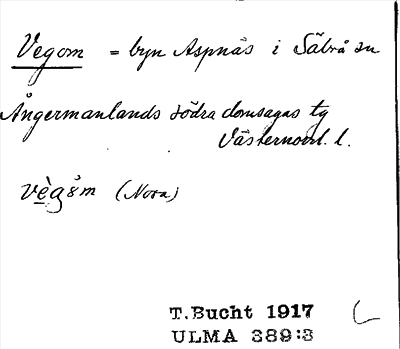 Vegom = byn Aspnäs i Säbrå sn
Ångermanlands södra domsagas tg
Västernorrl. l.
vègåm (Nora)
T.Bucht 1917
ULMA 389:3